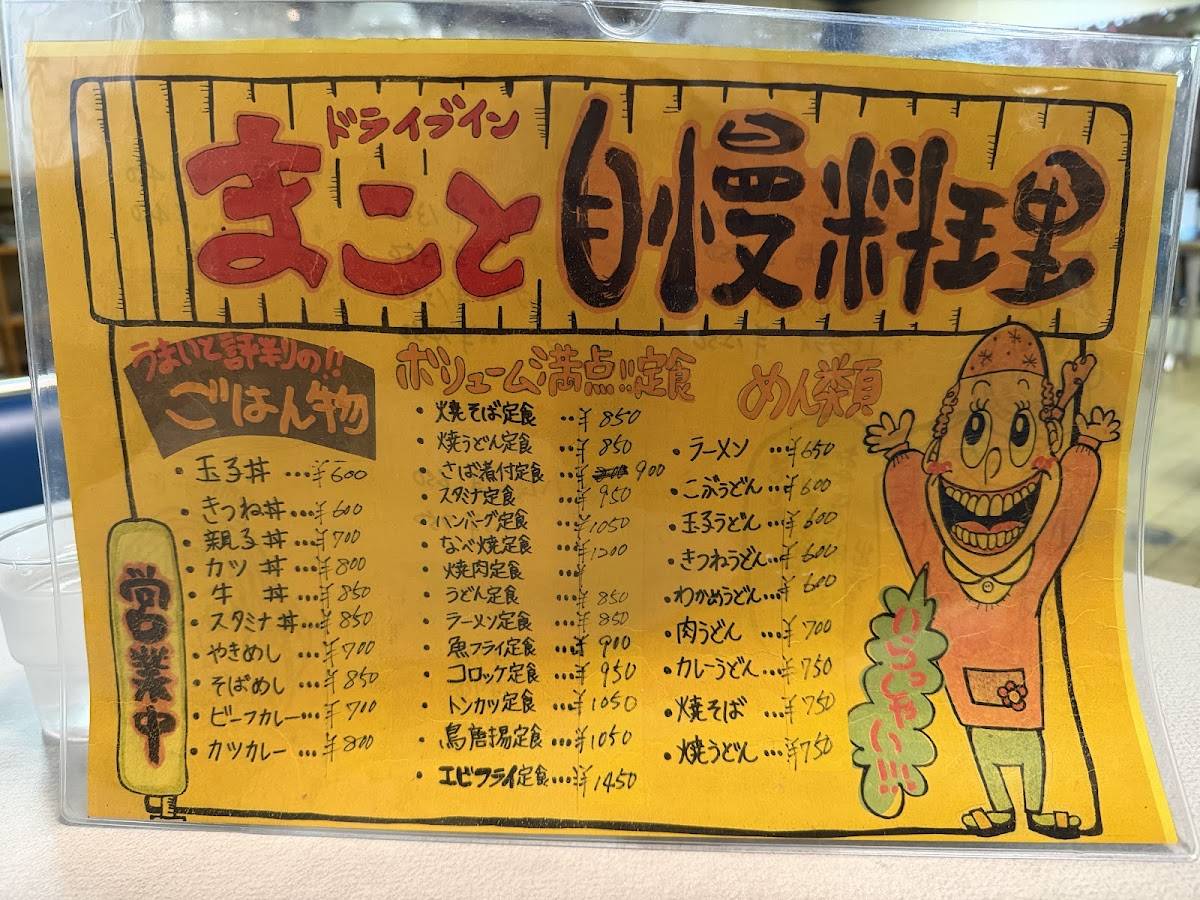 ドライブイン
まこと 自慢料理
うまいと評判の!!
ごはん物
・玉子丼…¥600
・きつね丼…¥600
・親子丼…¥700
・カツ丼…¥800
・牛 丼…¥850
・スタミナ丼…¥850
・やきめし…¥700
・そばめし…¥850
・ビーフカレー…¥700
・カツカレー…¥800
ボリューム満点!!定食
・焼そば定食…¥850
・焼うどん定食…¥850
・さば煮付定食…¥900
・スタミナ定食…¥950
・ハンバーグ定食…¥1050
・なべ焼定食…¥1200
・焼肉定食…¥
・うどん定食…¥850
・ラーメン定食…¥850
・魚フライ定食…¥900
・コロッケ定食…¥950
・トンカツ定食…¥1050
・鳥唐揚定食…¥1050
・エビフライ定食…¥1450
めん類
・ラーメン…¥650
・こぶうどん…¥600
・玉子うどん…¥600
・きつねうどん…¥600
・わかめうどん…¥600
・肉うどん…¥700
・カレーうどん…¥750
・焼そば…¥750
・焼うどん…¥750
営業中
いらっしゃい!!!